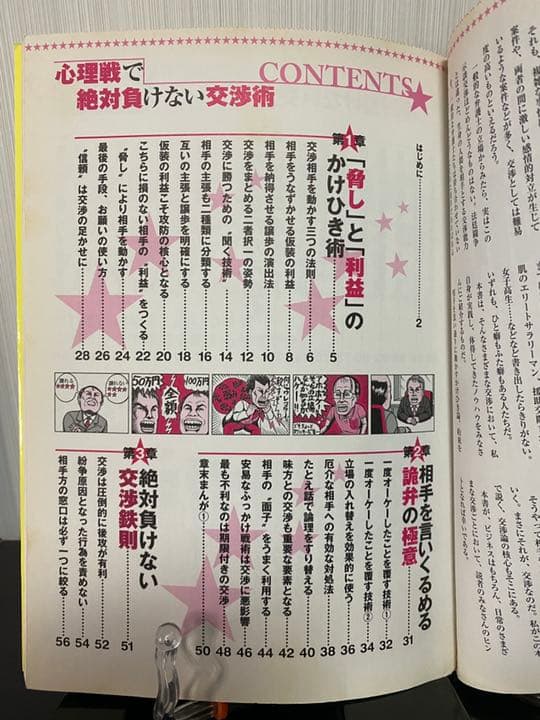 心理戦で
絶対負けない交渉術
CONTENTS
はじめに 2
第1章 「脅し」と「利益」の
かけひき術 5
交渉相手を動かす三つの法則 6
相手をうなずかせる仮装の利益 8
相手を納得させる譲歩の演出法 10
交渉をまとめる二者択一の姿勢 12
交渉に勝つための“聞く技術” 14
相手の主張も二種類に分類する 16
互いの主張と譲歩を明確にする 18
仮装の利益こそ攻防の核心となる 20
こちらに損のない相手の“利益”をつくる 22
“脅し”により相手を動かす 24
最後の手段、お願いの使い方 26
“信頼”は交渉の足かせに 28
50万円
100万円
全額
第2章 相手を言いくるめる
詭弁の極意 31
一度オーケーしたことを覆す技術① 32
一度オーケーしたことを覆す技術② 34
立場の入れ替えを効果的に使う 36
厄介な相手への有効な対処法 38
たとえ話で論理をすり替える 40
味方との交渉も重要な要素となる 42
相手の“面子”をうまく利用する 44
安易なふっかけ戦術は交渉に悪影響 46
最も不利なのは期限付きの交渉 48
章末まんが① 50
第3章 絶対負けない
交渉鉄則 51
交渉は圧倒的に後攻が有利 52
紛争原因となった行為を責めない 54
相手方の窓口は必ず一つに絞る 56
案件や、両者の間に激しい感情的対立が生じて
いるような案件などが多く、交渉としては難易
度の高いものといえるだろう。
肌のエリートサラリーマン、援助交際
女子高生……などなど書き出したらきりがない。
いずれも、ひと癖もふた癖もある人たちだ。
本書は、そんなさまざまな交渉において、私
自身が実践し、体得してきたノウハウをみなさ
いく、まさにそれが、交渉で
で説く、交渉論の核心もそこにある。
本書が、ビジネスはもちろん、日常のさまざ
まな交渉ごとにおいて、読者のみなさんのヒン
トとなれば幸いである。